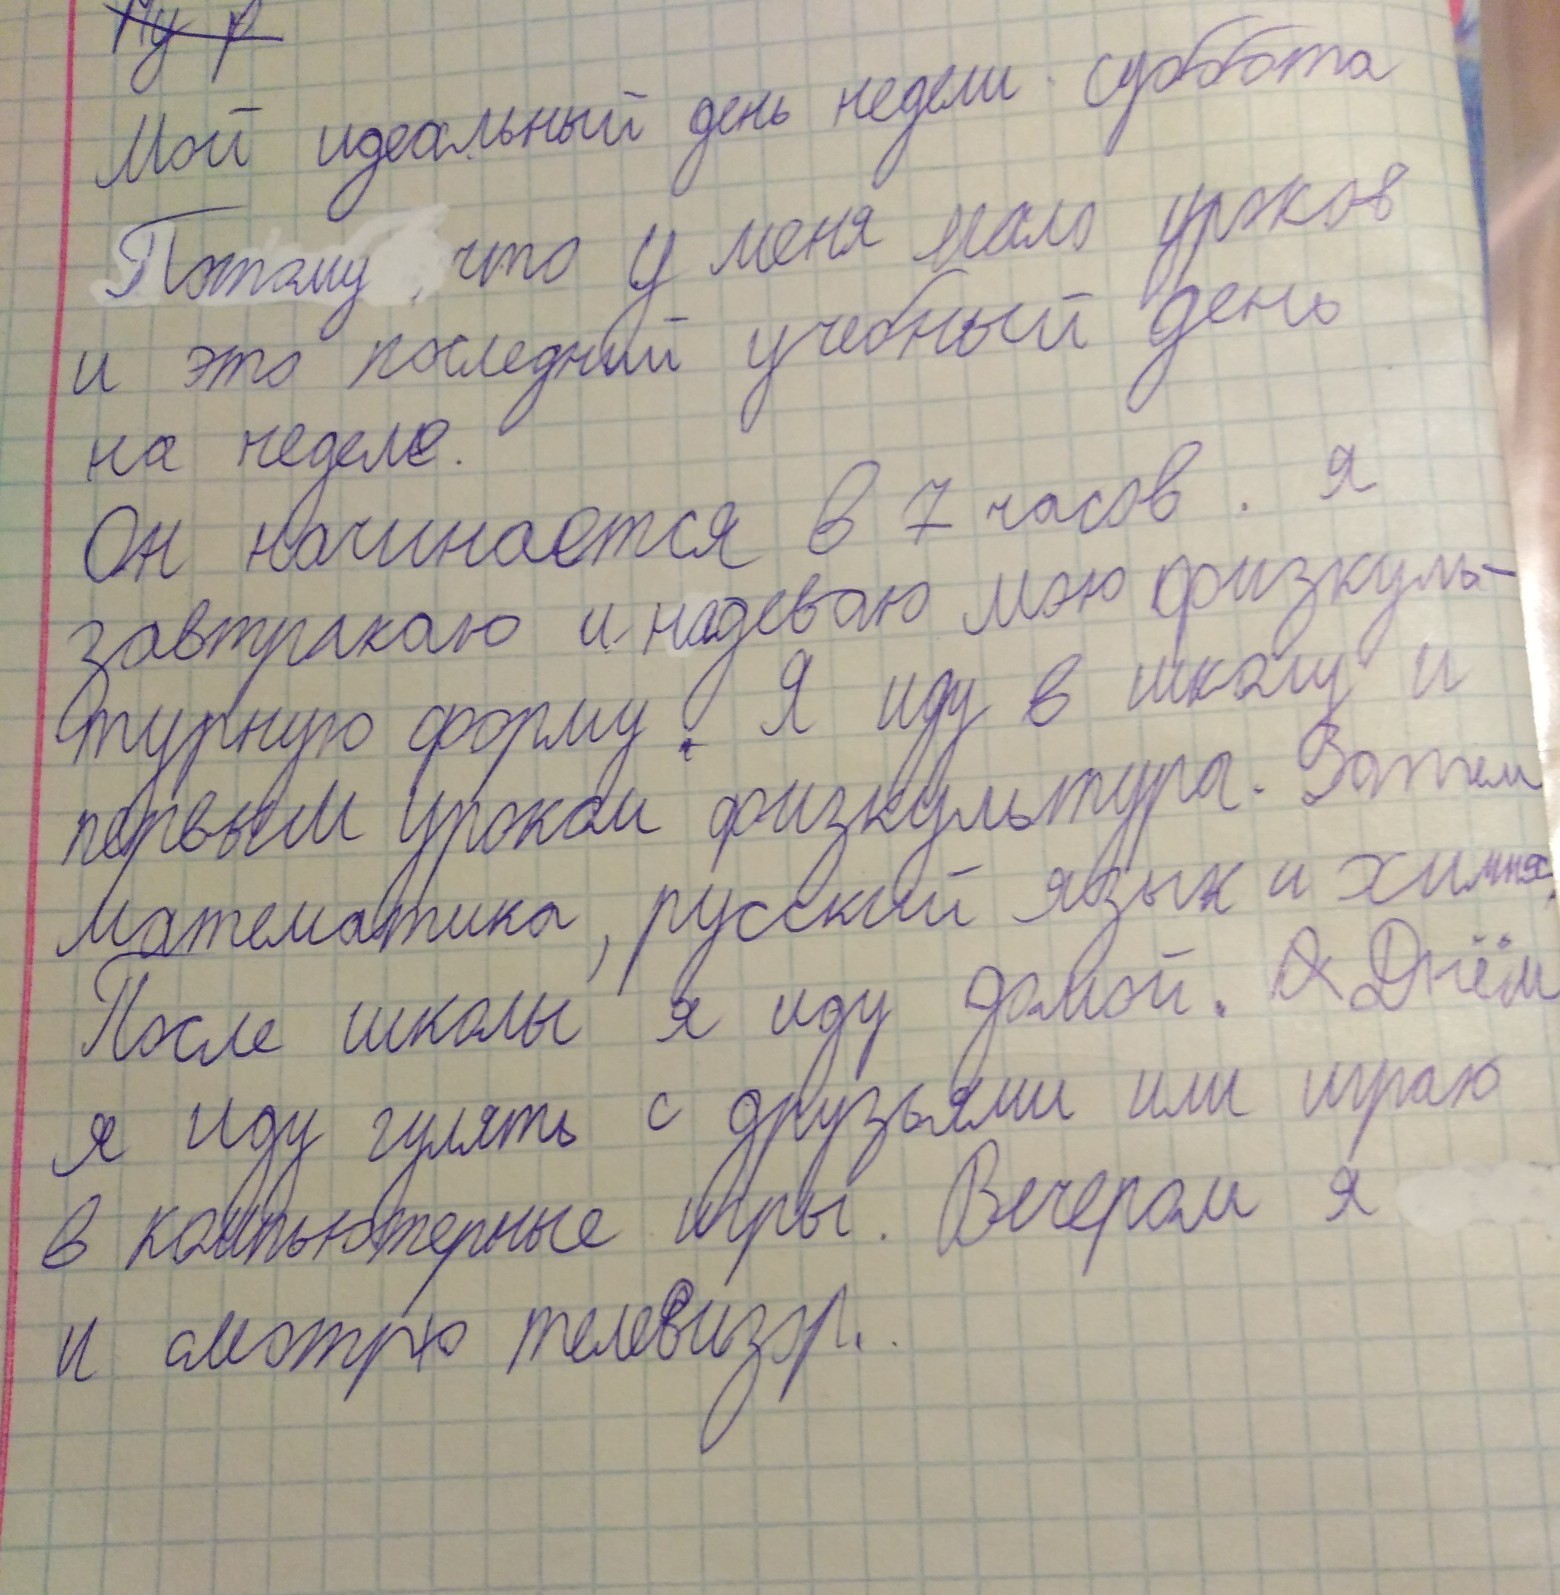 Му р
Мой идеальный день недели суббота
Потому, что у меня мало уроков
и это последний учебный день
на неделе.
Он начинается в 7 часов. я
завтракаю и надеваю мою физкуль-
турную форму. Я иду в школу и
первым уроком физкультура. Затем
математика, русский язык и химия.
После школы я иду домой. Днём
я иду гулять с друзьями или играю
в компьютерные игры. Вечером я
и смотрю телевизор.